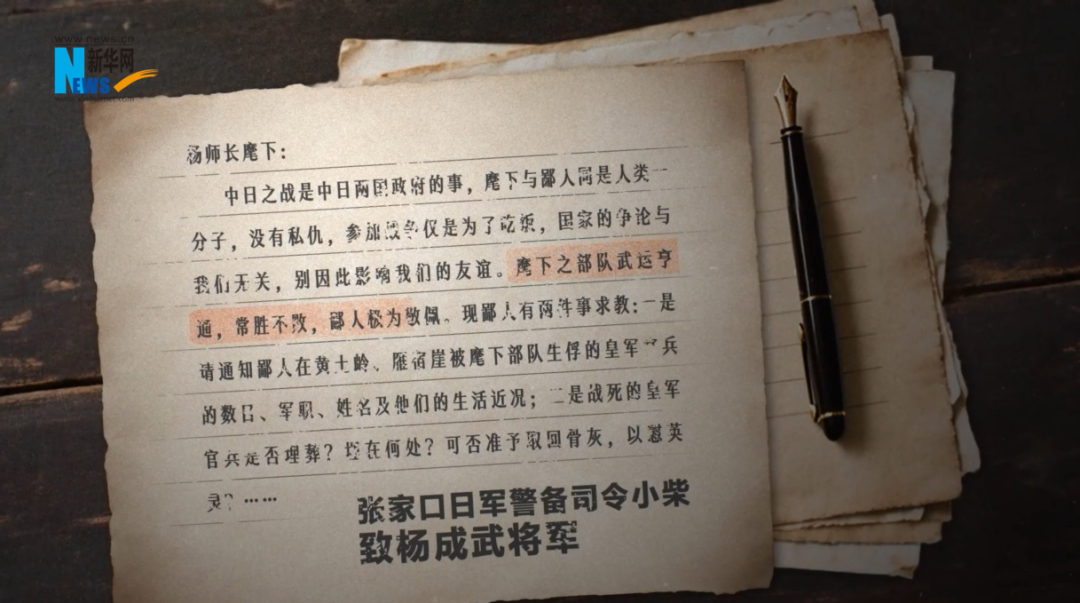 www.news.cn
新华网
NEWS
杨师长麾下：
中日之战是中日两国政府的事，麾下与鄙人同是人类一
分子，没有私仇，参加战争仅是为了吃粮，国家的争论与
我们无关，别因此影响我们的友谊。麾下之部队武运亨
通，常胜不败，鄙人极为敬佩。现鄙人有两件事求教：一是
请通知鄙人在黄土岭、雁宿崖被麾下部队生俘的皇军官兵
的数目、军职、姓名及他们的生活近况；二是战死的皇军
官兵是否埋葬？埋在何处？可否准予取回骨灰，以慰英
灵？……
张家口日军警备司令小柴
致杨成武将军